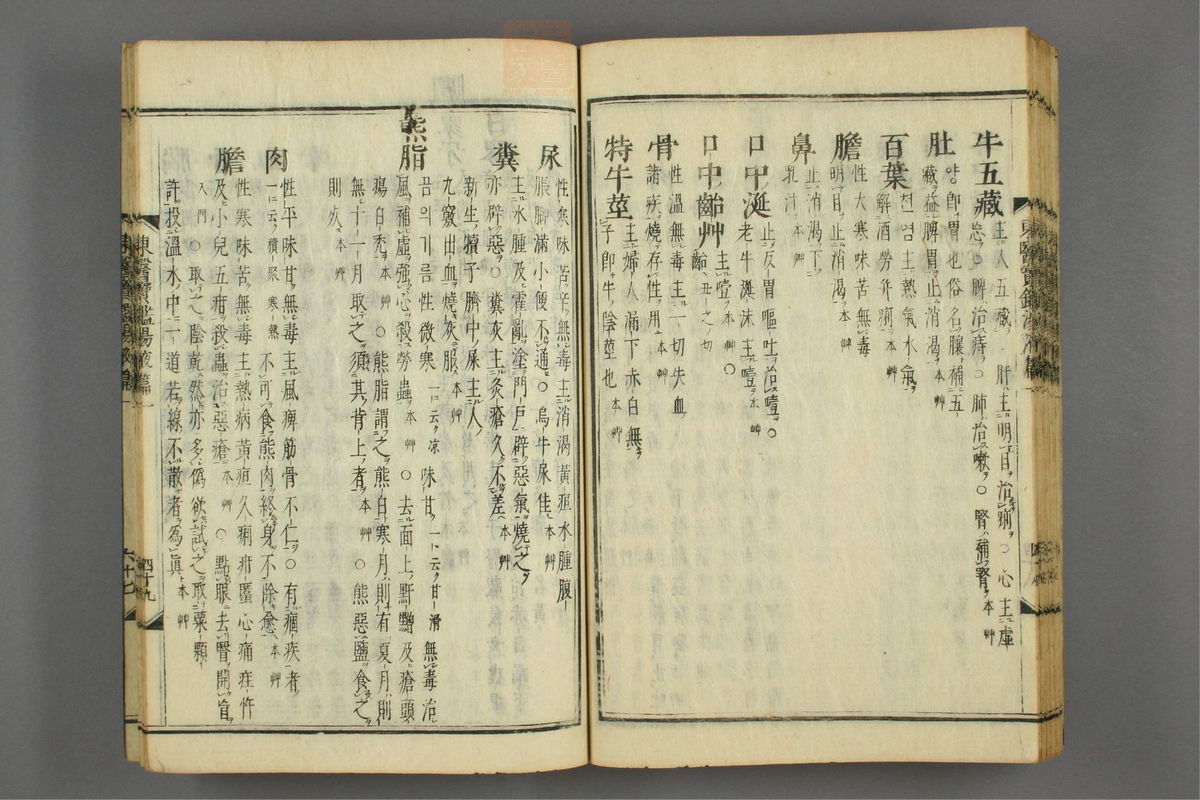 牛五藏 主人五藏○肝主明目治痢○心主虛
忘○脾治痔○肺治嗽○腎補腎本艸
肚 양卽胃也俗名䑋補五
藏益脾胃止消渴本艸
百葉 쳔엽主熱氣水氣
解酒勞幷痢本艸
膽 性大寒味苦無毒
明目止消渴本艸
鼻 止消渴下
乳汁本艸
口中涎 止反胃嘔吐治噎○
老牛涎沫主噎本艸○
口中齝艸 主噎本艸○
齝丑之切
骨 性溫無毒主一切失血
諸疾燒存性用本艸
特牛莖 主婦人漏下赤白無
子卽牛陰莖也本艸
東醫寶鑑湯液篇一
尿 性寒味苦辛無毒主消渴黃疸水腫腹
脹脚滿小便不通○烏牛尿佳本艸
糞 主水腫及霍亂塗門戶辟惡氣燒之
亦辟惡○糞灰主灸瘡久不差本艸
新生犢子臍中屎主人
九竅出血燒灰服本艸
熊脂 곰의기름性微寒一云凉味甘一云甘滑無毒治
風補虛強心殺勞蟲本艸○去面上䵟䵳及瘡頭
瘍白禿本艸○熊脂謂之熊白寒月則有夏月則
無十一月取之須其背上者本艸○熊惡鹽食之
則死本艸
肉 性平味甘無毒主風痺筋骨不仁○有痼疾者
一云積聚寒熱不可食熊肉終身不除愈本艸
膽 性寒味苦無毒主熱病黃疸久痢疳䘌心痛疰忤
及小兒五疳殺蟲治惡瘡本艸○點眼去瞖開盲
入門○取之陰乾然亦多僞欲試之取粟顆
許投溫水中一道若線不散者爲眞本艸
東醫寶鑑湯液篇一
四十九
六十七